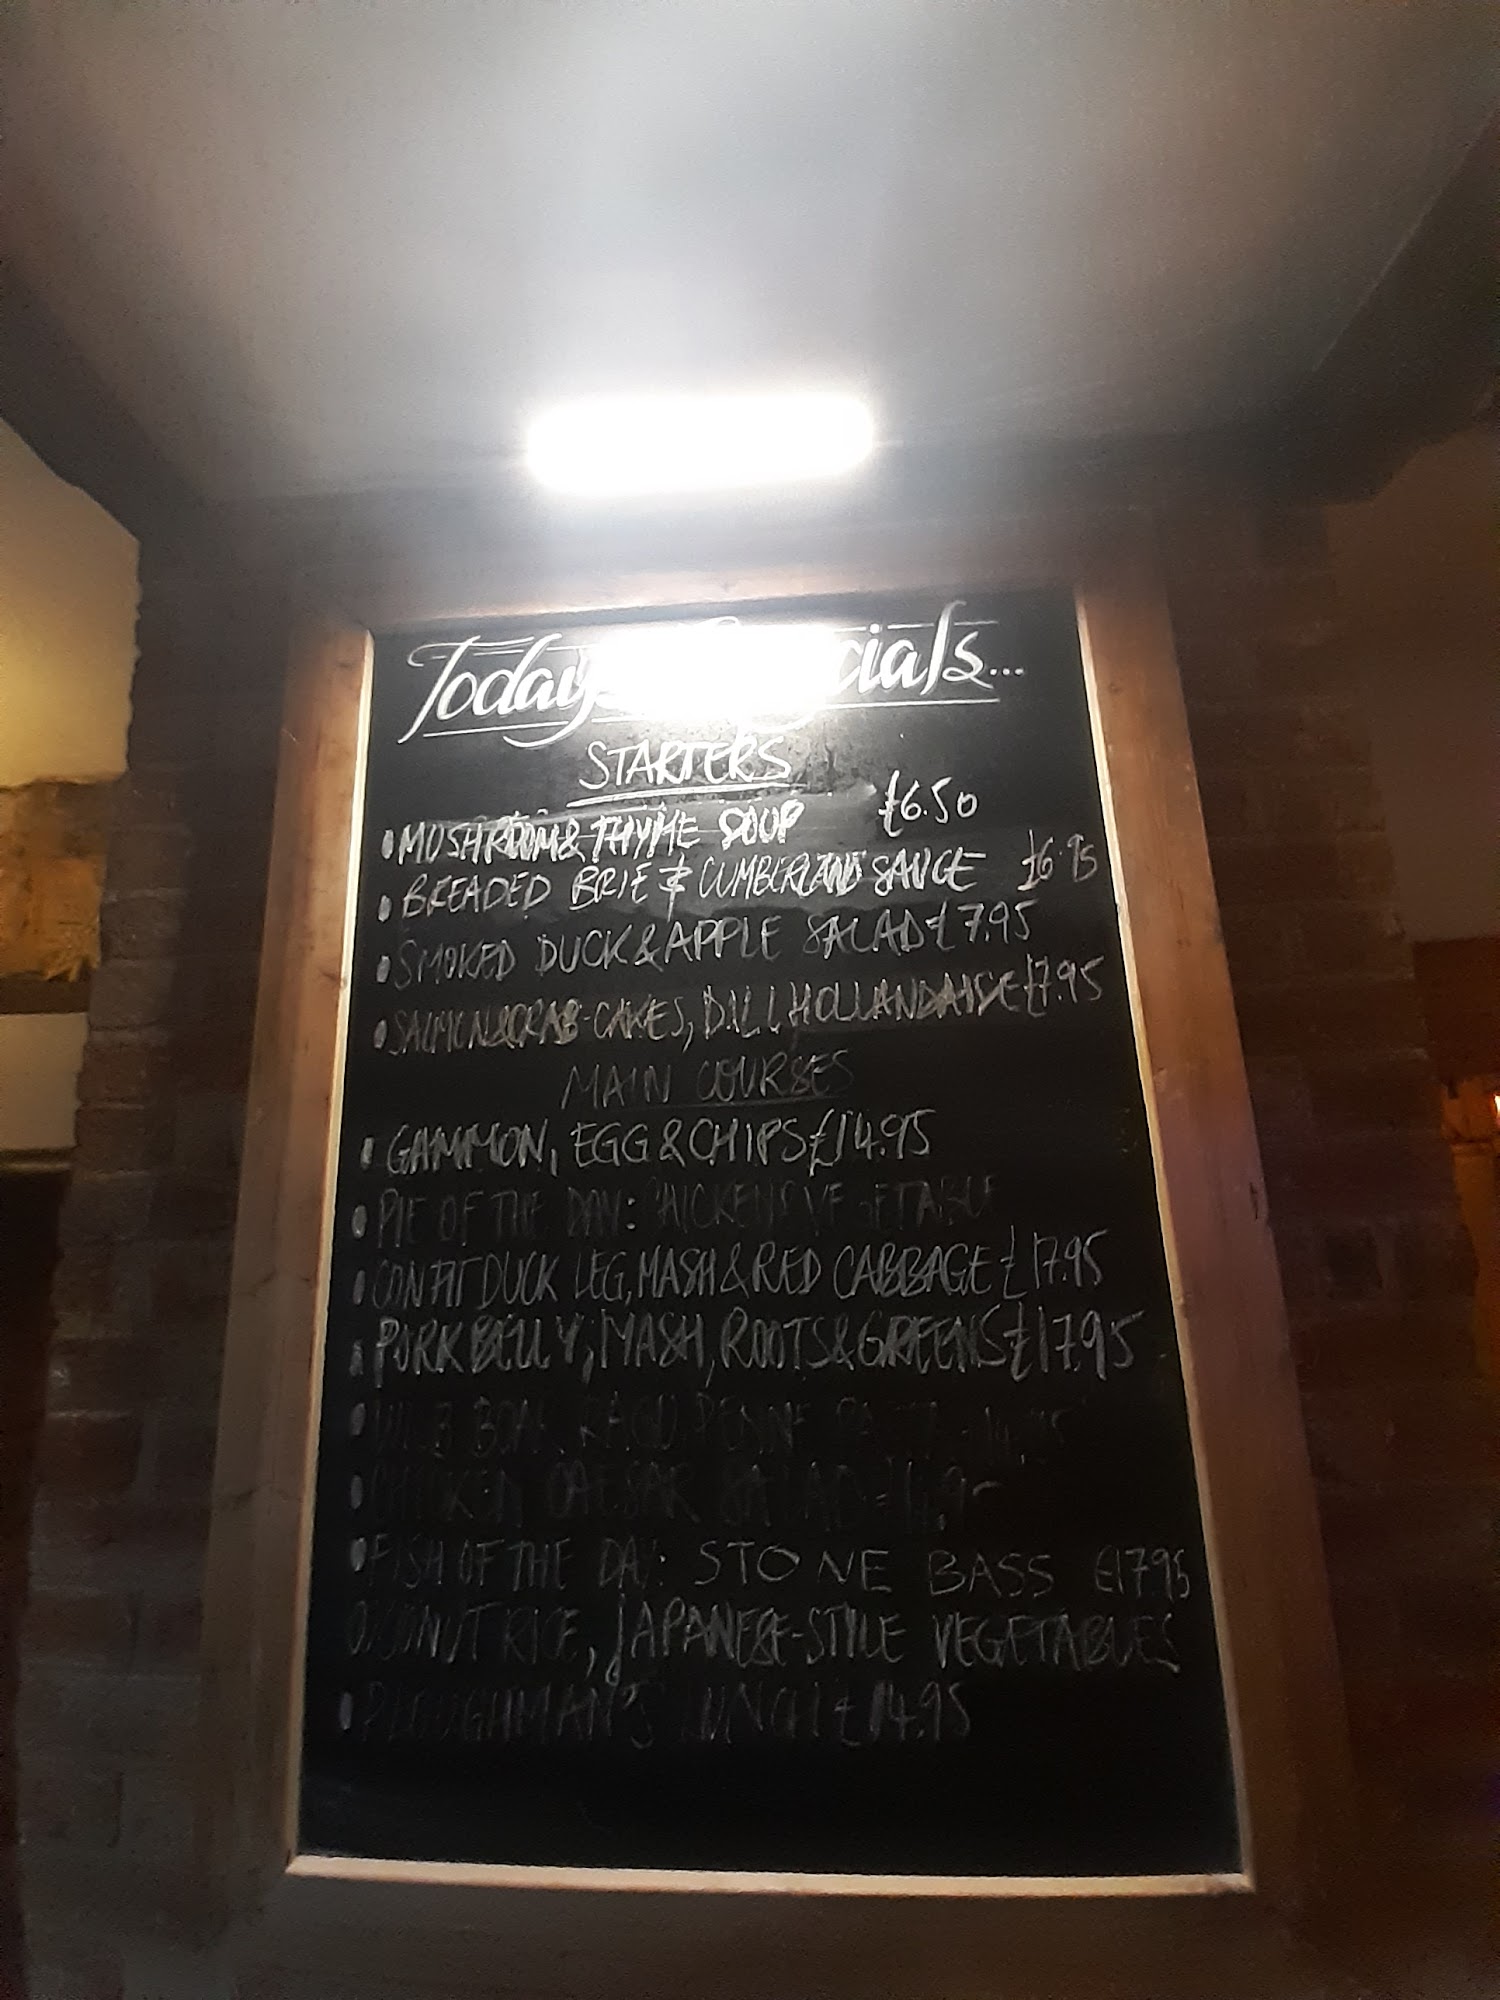 Today's Specials...
STARTERS
• MUSHROOM & THYME SOUP £6.50
• BREADED BRIE & CUMBERLAND SAUCE £6.95
• SMOKED DUCK & APPLE SALAD £7.95
• SALMON & CRAB CAKES, DILL HOLLANDAISE £7.95
MAIN COURSES
• GAMMON, EGG & CHIPS £14.95
• PIE OF THE DAY: CHICKEN & VEGETABLE
• CONFIT DUCK LEG, MASH & RED CABBAGE £17.95
• PORK BELLY, MASH, ROOTS & GREENS £17.95
• WILD BOAR RAGU PENNE PASTA
• CHICKEN CAESAR SALAD
• FISH OF THE DAY: STONE BASS £17.95
COCONUT RICE, JAPANESE-STYLE VEGETABLES
• PLOUGHMAN'S LUNCH £14.95